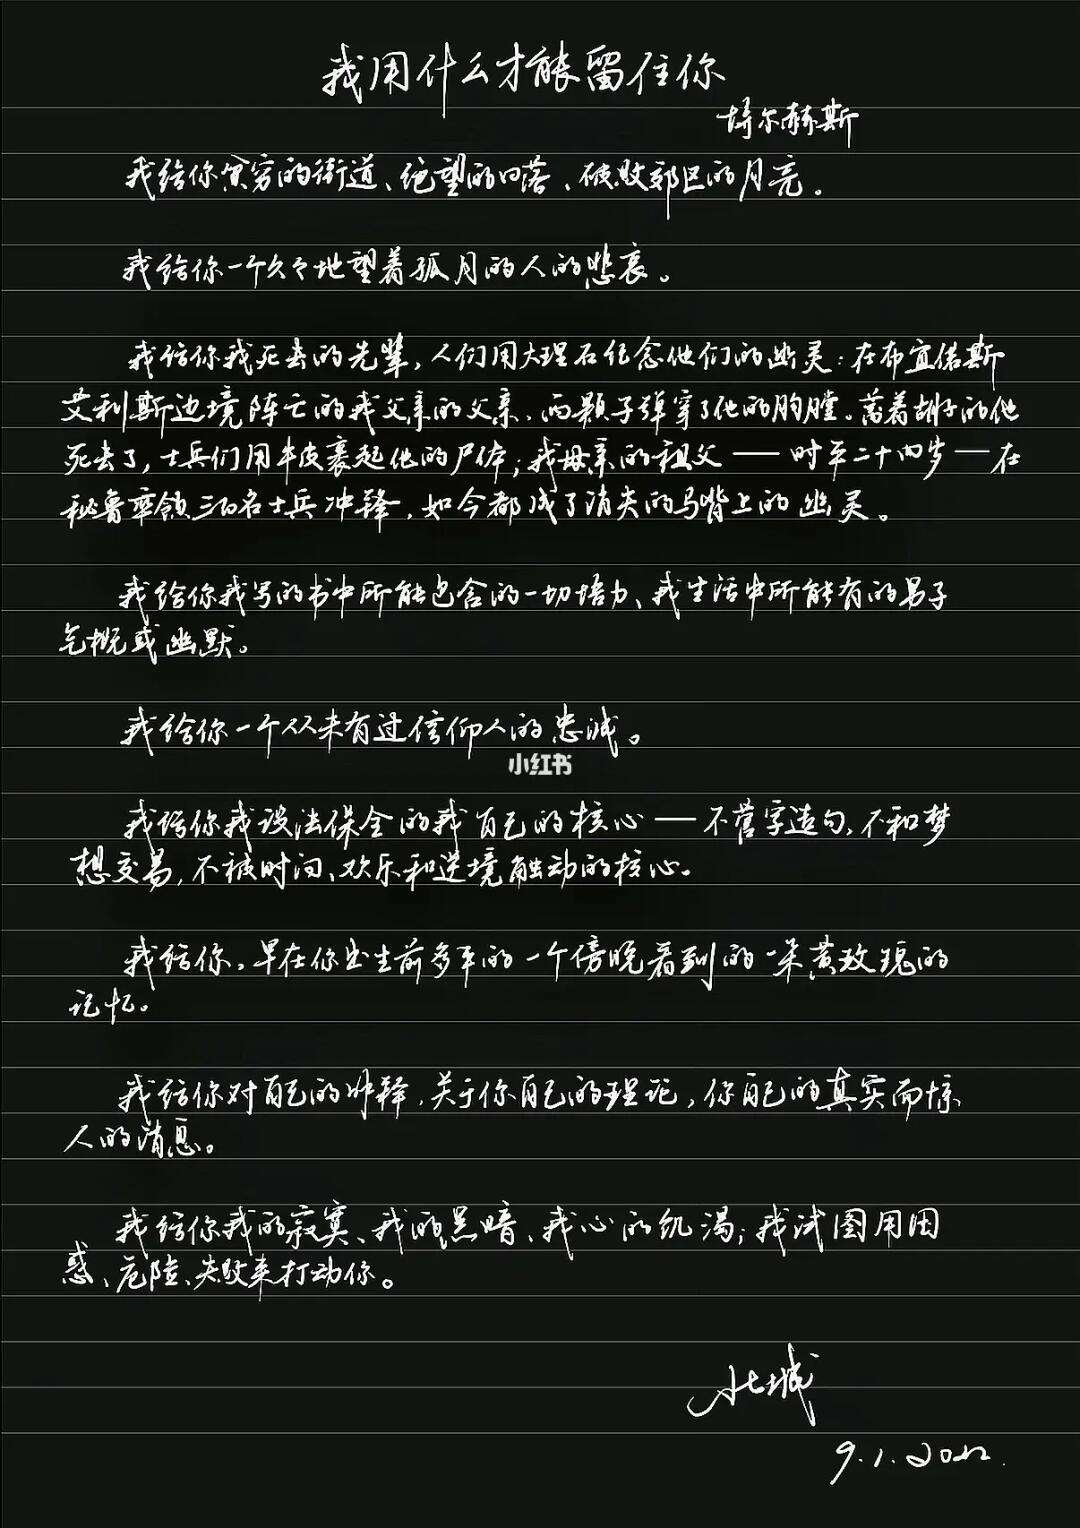 我用什么才能留住你
博尔赫斯
我给你贫穷的街道、绝望的日落、破败郊区的月亮。
我给你一个久久地望着孤月的人的悲哀。
我给你我死去的先辈，人们用大理石纪念他们的幽灵：在布宜偌斯
艾利斯边境阵亡的我父亲的父亲、两颗子弹穿了他的胸膛。蓄着胡子的他
死去了，士兵们用牛皮裹起他的尸体；我母亲的祖父——时年二十四岁—在
秘鲁率领三百名士兵冲锋，如今都成了消失的马背上的幽灵。
我给你我写的书中所能包含的一切悟力、我生活中所能有的男子
气概或幽默。
我给你一个从未有过信仰人的忠诚。
小红书
我给你我设法保全的我自己的核心——不营字造句，不和梦
想交易，不被时间、欢乐和逆境触动的核心。
我给你，早在你出生前多年的一个傍晚看到的一朵黄玫瑰的
记忆。
我给你对自己的解释，关于你自己的理论，你自己的真实而惊
人的消息。
我给你我的寂寞、我的黑暗、我心的饥渴；我试图用困
惑、危险、失败来打动你。
9.1.2022